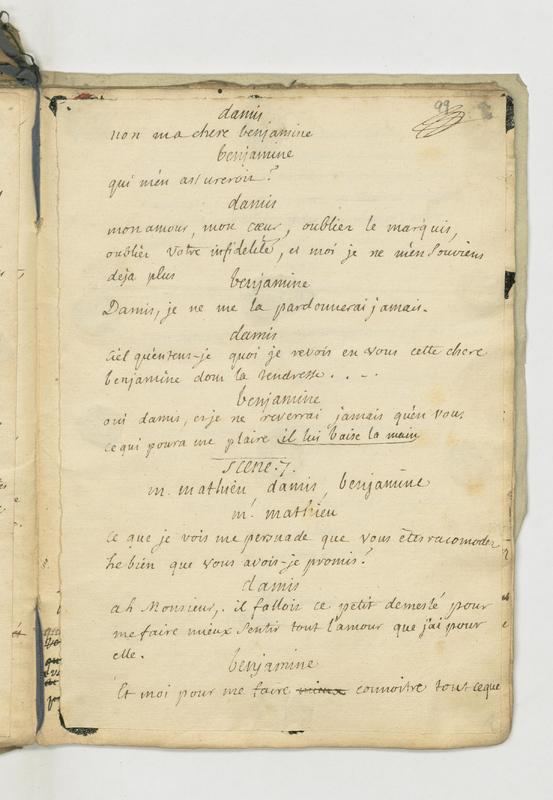 99
damis
non ma chere benjamine
benjamine
qui m'en assureroit?
damis
mon amour, mon cœur, oubliez le marquis,
oubliez votre infidelité, et moi je ne m'en souviens
deja plus
benjamine
Damis, je ne me la pardonnerai jamais.
damis
Ciel qu'entens-je quoi je revois en vous cette chere
benjamine dont la tendresse . . -
benjamine
oui damis, et je ne reverrai jamais qu'en vous
ce qui poura me plaire il lui baise la main
scene. 7.
m. mathieu damis, benjamine
mr. mathieu
ce que je vois me persuade que vous êtes racomodez
he bien que vous avois-je promis?
damis
ah Monsieur, il falloit ce petit demeslé pour
me faire mieux sentir tout l'amour que j'ai pour
elle.
benjamine
Et moi pour me faire mieux connoitre tout ceque